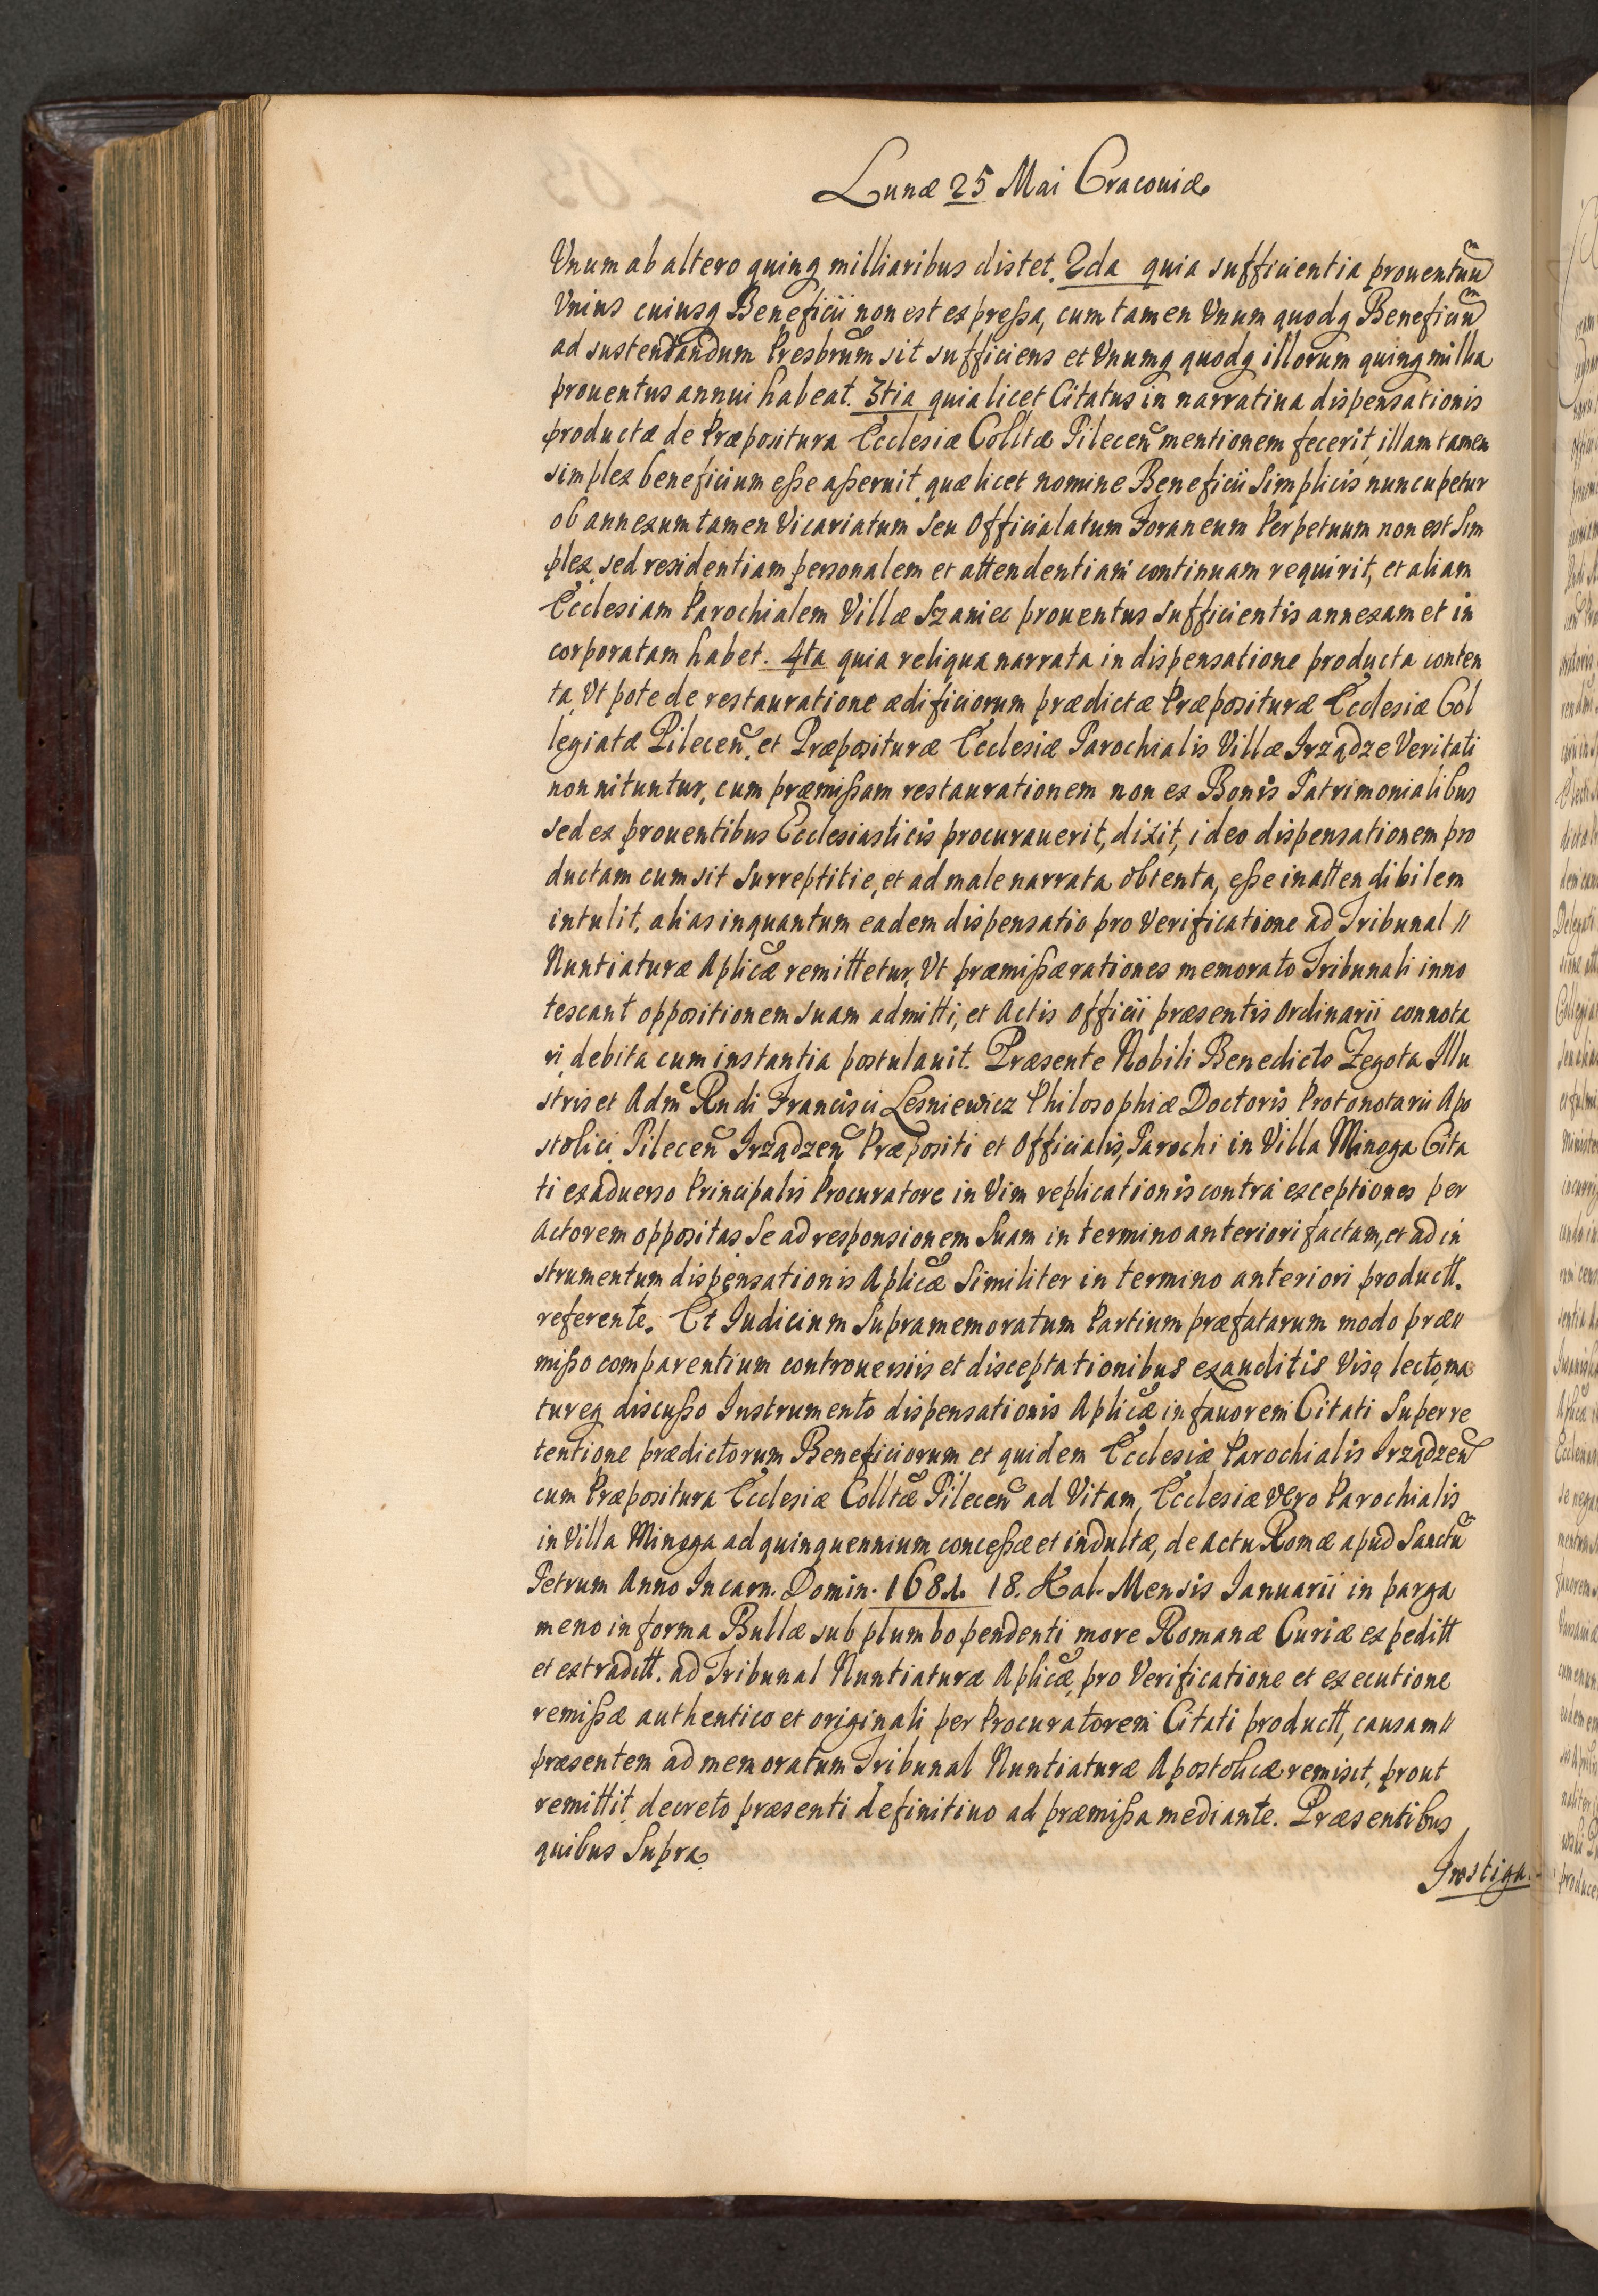 Lunæ 25 Mai Cracouiæ
Vnum ab altero quinq milliaribus distet. 2da quia sufficientia prouentuũ
Vnius cuiusq Beneficii non est expreßa, cum tamen Vnum quodq Beneficiũ
ad sustendandum Presbrum sit sufficiens et Vnumq quodq illorum quinq millia
prouentus annui habeat. 3tia quia licet Citatus in narratiua dispensationis
productæ de Præpositura Ecclesiæ Colltæ Pilecen mentionem fecerit, illam tamen
simplex beneficium eße aßeruit, quæ licet nomine Beneficii Simplicis nuncupetur
ob annexum tamen Vicariatum Seu Officialatum Foraneum Perpetuum non est Sim
plex, sed residentiam personalem et attendentiam continuam requirit, et aliam
Ecclesiam Parochialem Villæ Szaniec prouentus sufficientis annexam et in
corporatam habet. 4ta quia reliqua narrata in dispensatione producta conten
ta, Vt pote de restauratione ædificiorum prædictæ Præposituræ Ecclesiæ Col
legiatæ Pilecen. et Præposituræ Ecclesiæ Parochialis Villæ Irządze Veritati
non nituntur, cum præmißam restaurationem non ex Bonis Patrimonialibus
sed ex prouentibus Ecclesiasticis procurauerit, dixit, ideo dispensationem pro
ductam cum sit Surreptitie, et ad male narrata obtenta, eße inattendibilem
intulit, alias inquantum eadem dispensatio pro Verificatione ad Tribunal //
Nuntiaturæ Aplicæ remittetur, Vt præmißæ rationes memorato Tribunali inno
tescant oppositionem suam admitti, et Actis Officii præsentis Ordinarii connota
ri, debita cum instantia postulauit. Præsente Nobili Benedicto Zegota Illu
stris et Adm Rndi Francisci Lesniewicz Philosophiæ Doctoris Protonotarii Apo
stolici, Pilecen Irządzen Præpositi et Officialis, Parochi in Villa Minoga Cita
ti ex aduerso Principalis Procuratore in Vim replicationis contra exceptiones per
Actorem oppositas Se ad responsionem Suam in termino anteriori factam, et ad in
strumentum dispensationis Aplicæ Similiter in termino anteriori productt.
referente. Et Iudicium Supramemoratum Partium præfatarum modo præ//
mißo comparentium controuersiis et disceptationibus exauditis Visq lecto, ma
tureq discußo Instrumento dispensationis Aplicæ in fauorem Citati Super re
tentione prædictorum Beneficiorum et quidem Ecclesiæ Parochialis Irządzen
cum Præpositura Ecclesiæ Colltæ Pilecen ad Vitam, Ecclesiæ Vero Parochialis
in Villa Minoga ad quinquennium conceßæ et indultæ, de Actu Romæ apud Sanctũ
Petrum Anno Incarn. Domin. 1681. 18. Kal. Mensis Ianuarii in parga
meno in forma Bullæ sub plumbo pendenti more Romanæ Curiæ expeditt
et extraditt. ad Tribunal Nuntiaturæ Aplicæ, pro Verificatione et executione
remißæ authentico et originali per Procuratorem Citati productt, causam //
præsentem ad memoratum Tribunal Nuntiaturæ Apostolicæ remisit, prout
remittit, decreto præsenti definitiuo ad præmißa mediante. Præsentibus
quibus Supra.
Instiga.